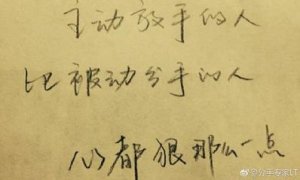 主动放手的人
比被动分手的人
心都狠那么一点
@分手专家LT